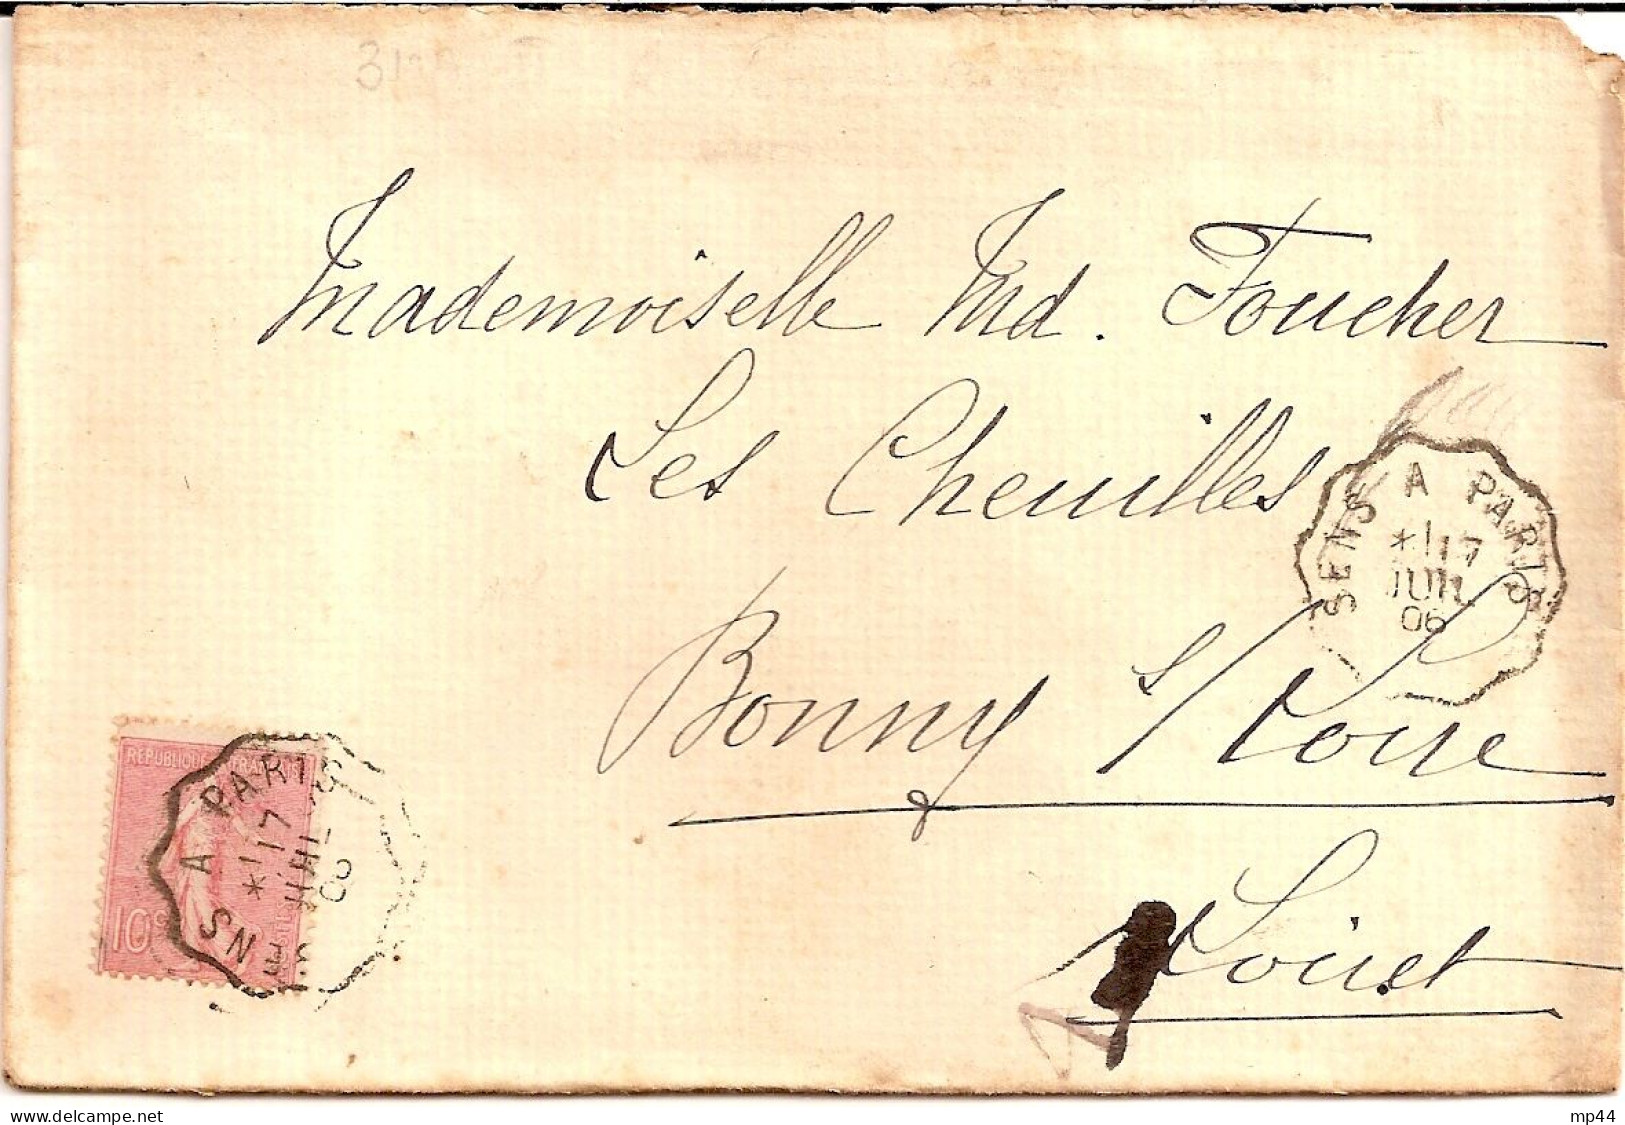 Mademoiselle Md. Foucher
Les Cheuilles
Bonny s/ Loire
Loiret
SENS A PARIS
*1 17
JUIL
06
REPUBLIQUE FRANCAISE
10c
SENS A PARIS
*1 17
JUIL
06
delcampe.net
mp44